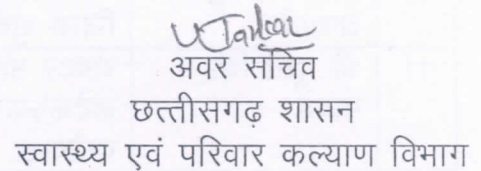 अवर सचिव
छत्तीसगढ़ शासन
स्वास्थ्य एवं परिवार कल्याण विभाग